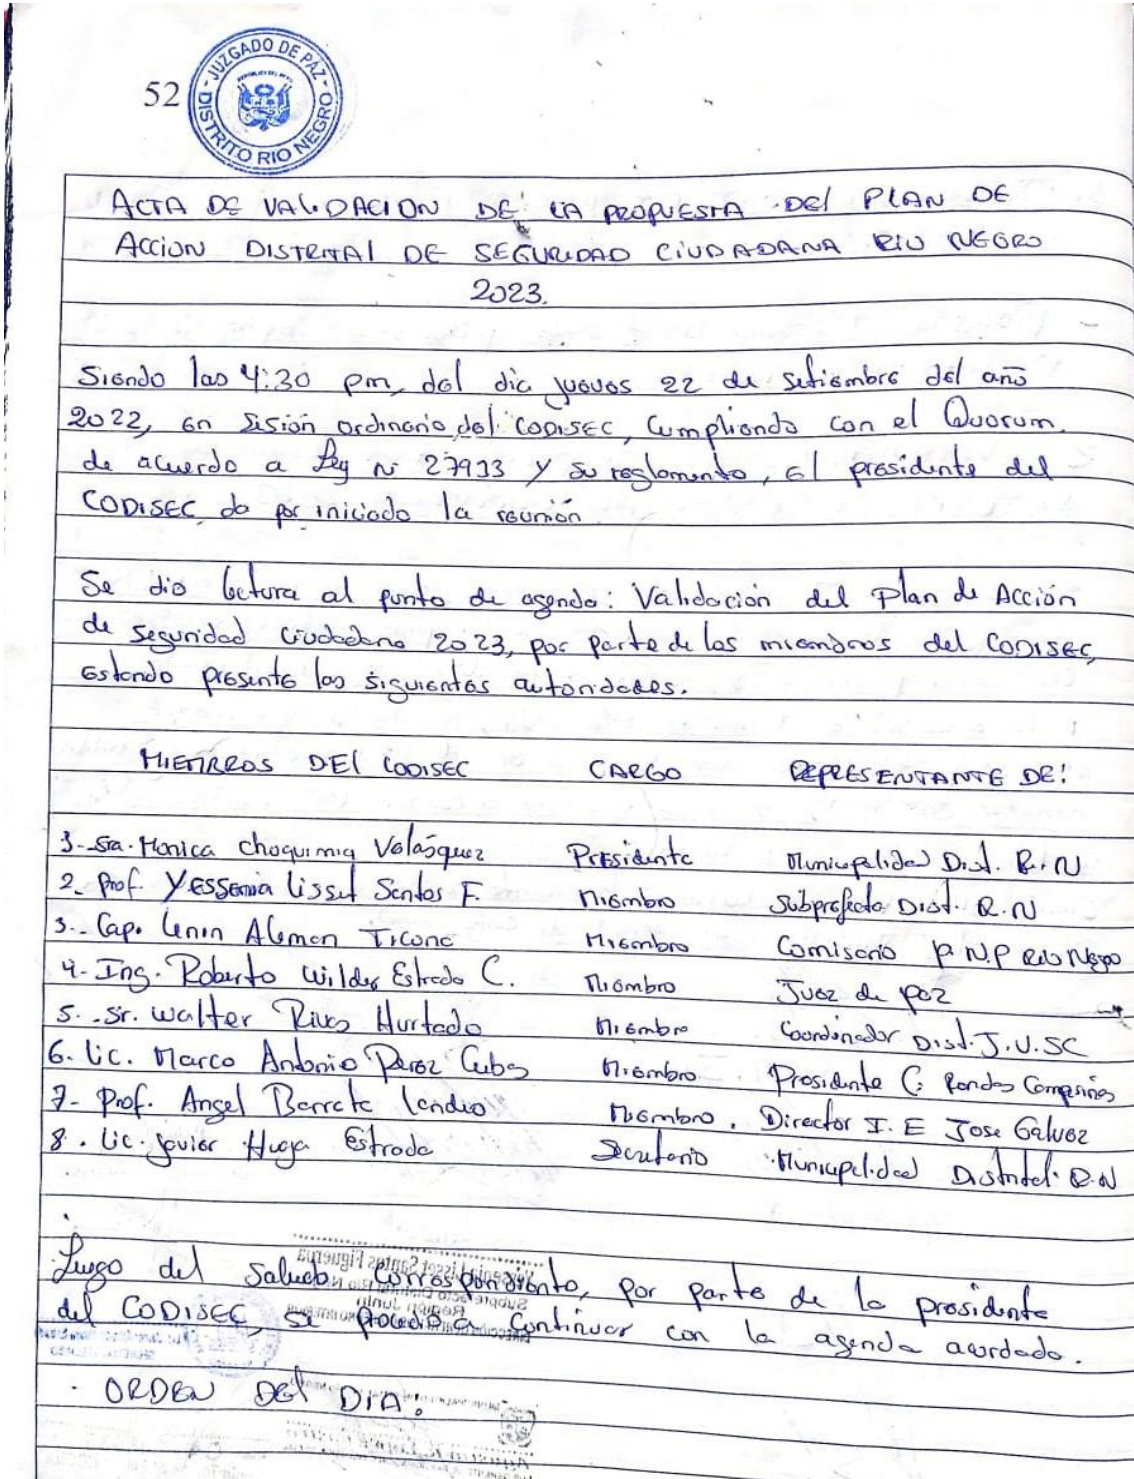 52
JUZGADO DE PAZ
DISTRITO RIO NEGRO
ACTA DE VALIDACION DE LA PROPUESTA DEl PLAN DE
ACCION DISTRITAl DE SEGURIDAD CiUDADANA RIO NEGRO
2023.
Siendo las 4:30 pm, del dia jueves 22 de setiembre del año
2022, en sesión ordinario del CODISEC, Cumpliendo con el Quorum,
de acuerdo a Ley N° 27933 y su reglamento, el presidente del
CODISEC, da por iniciado la reunión
Se dio lectura al punto de agenda: Validación del Plan de Acción
de seguridad ciudadana 2023, por parte de los miembros del CODISEC,
Estando presente los siguientes autoridades.
MIEMBROS DEl CODISEC CARGO REPRESENTANTE DE:
1.- Sra. Monica Choquimia Velásquez Presidente Municipalidad Dist. R.N
2.- Prof. YESSENIA Lisset Santos F. Miembro Subprefecta Dist. R.N
3.- Cap. Lenin Aleman Ticona Miembro Comisario P.N.P Rio Negro
4.- Ing. Roberto Wilder Estrada C. Miembro Juez de paz
5.- Sr. Walter Rivas Hurtado Miembro Coordinador Dist. J.V.SC
6. Lic. Marco Antonio Perez Cubas Miembro Presidente C. Rondas Campesinas
7- Prof. Angel Barreto Miembro. Director I.E Jose Galvez
8. Lic. Javier Estrada Secretario Municipalidad Distrital R.N
Luego del saludo correspondiente, por parte de la presidente
del CODISEC, se procede a continuar con la agenda acordado.
· ORDEN DEl DIA: